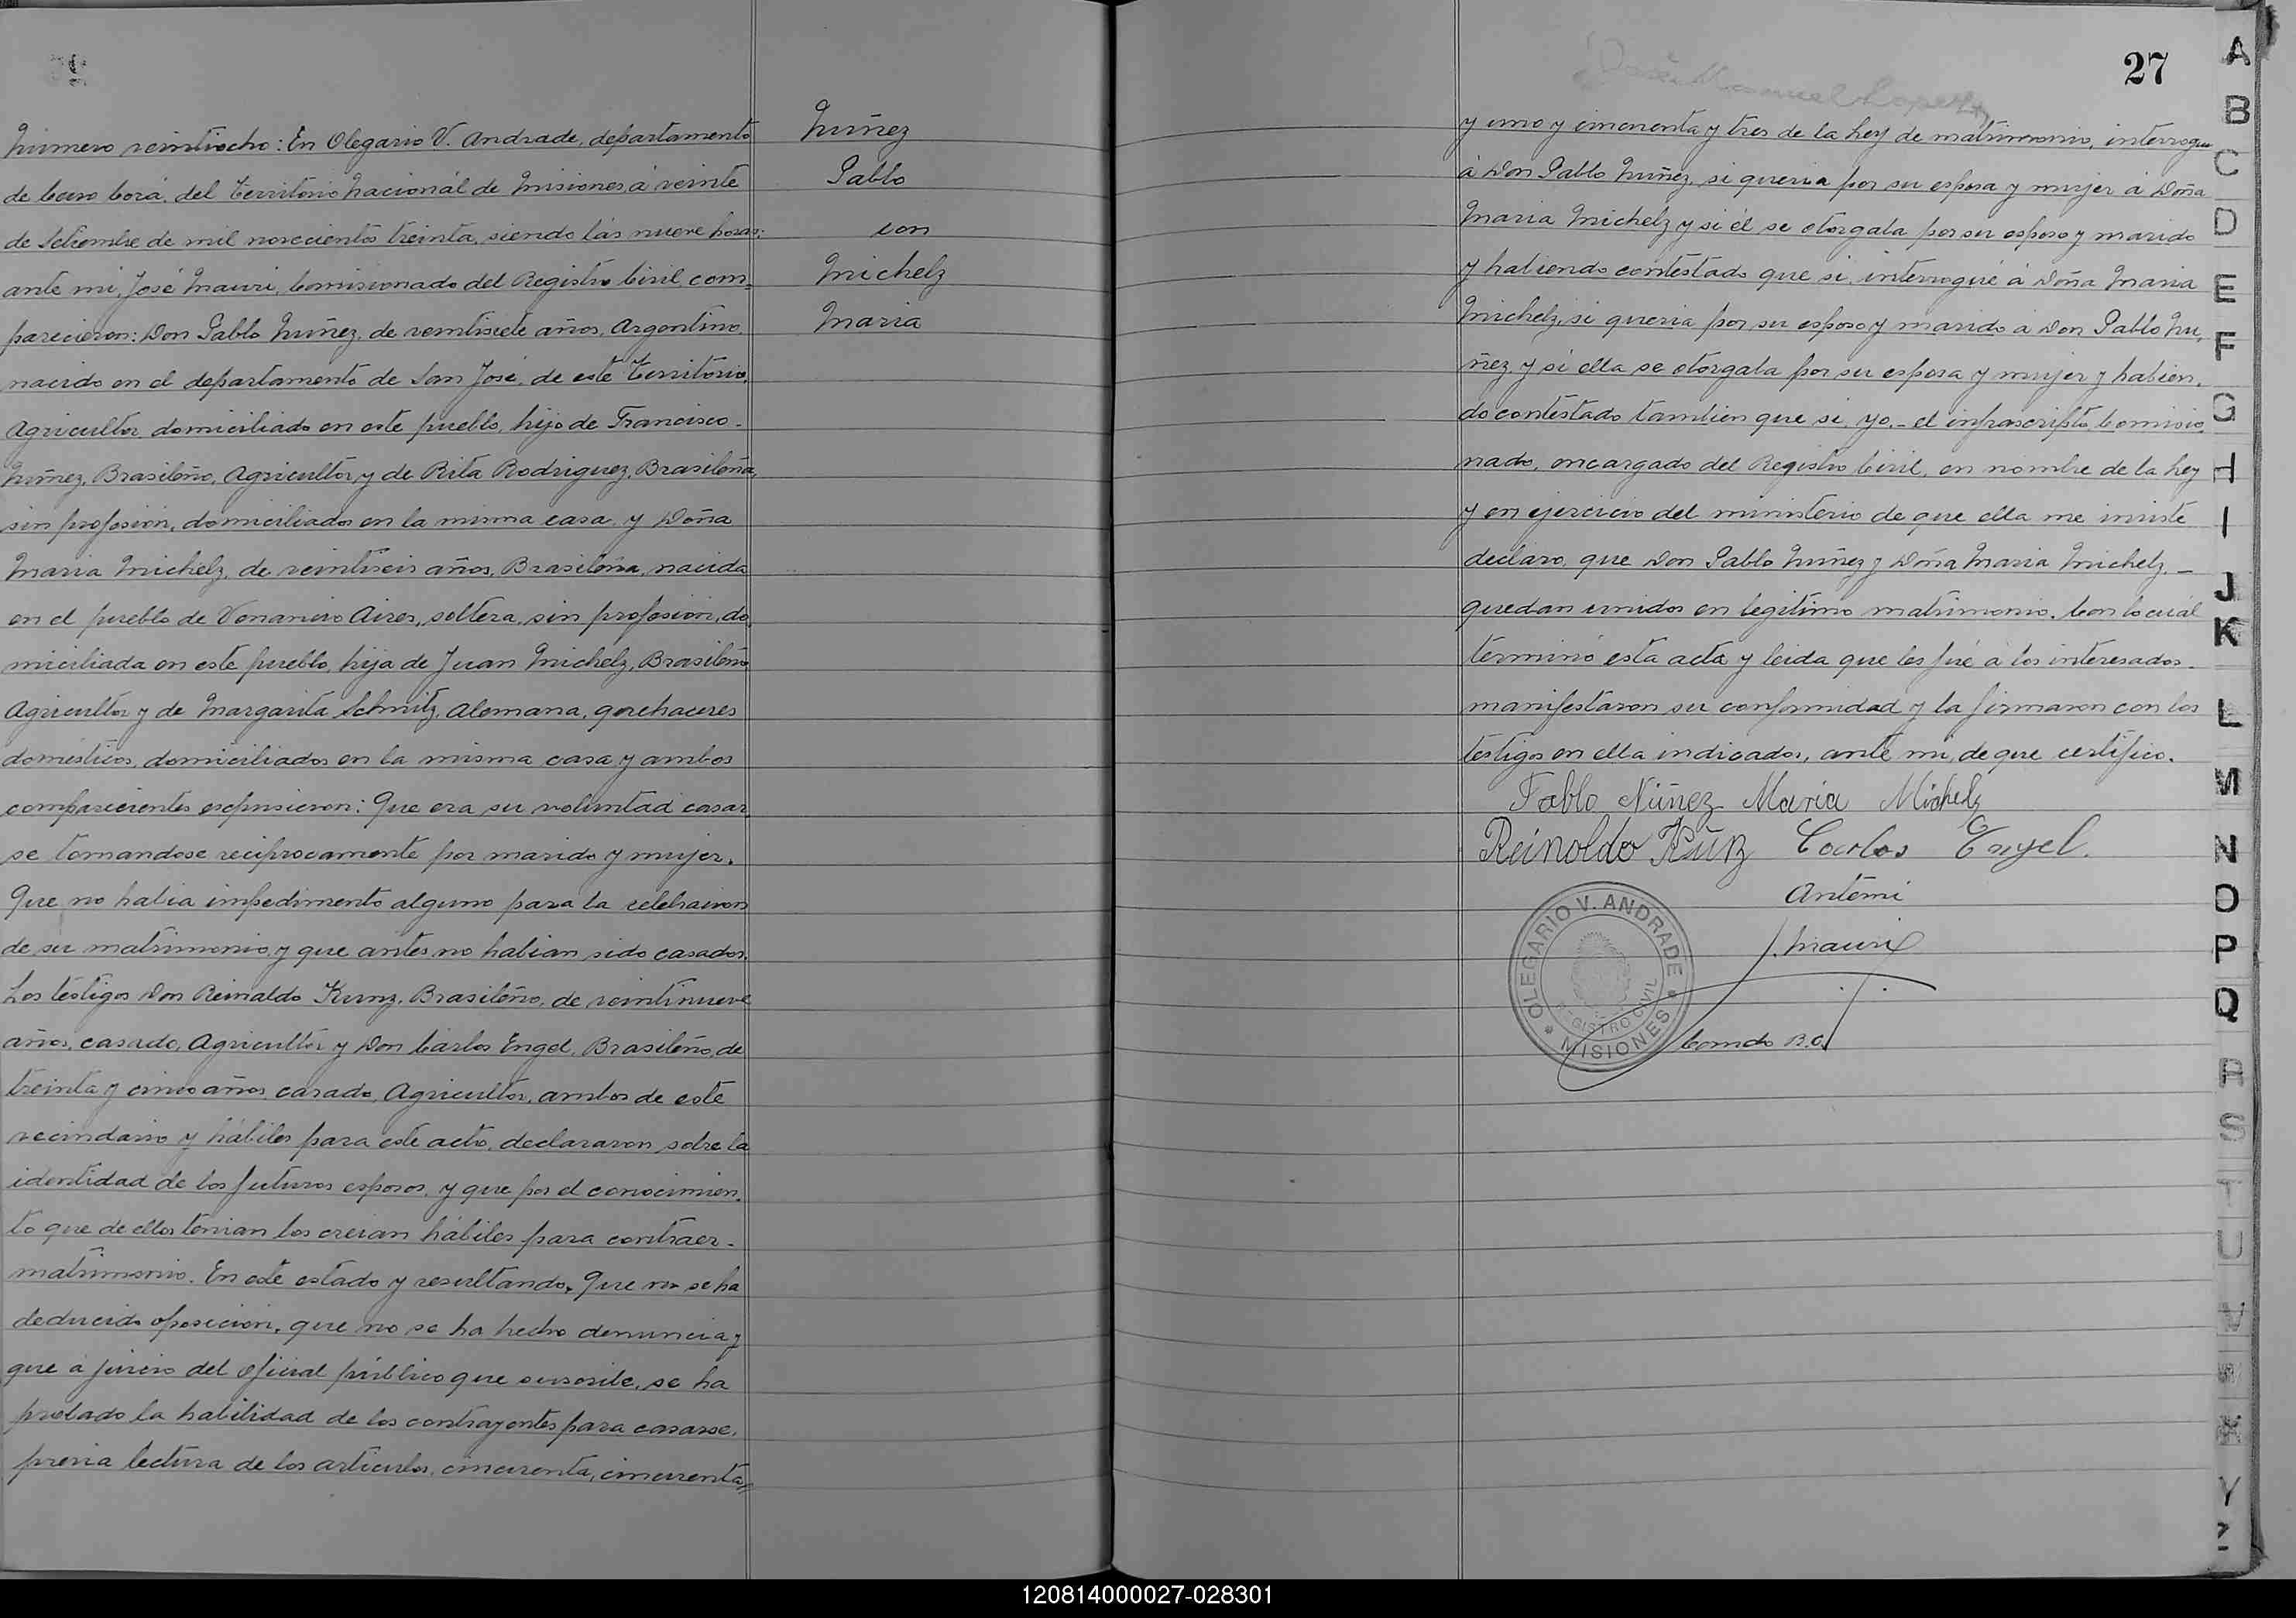 Número veintiocho: En Olegario V. Andrade, departamento
de Cerro Corá, del Territorio Nacional de Misiones, á veinte
de Setiembre de mil novecientos treinta, siendo las nueve horas:
ante mi, José Mauri, Comisionado del Registro Civil, com=
parecieron: Don Pablo Nuñez, de veintisiete años, Argentino,
nacido en el departamento de San José, de este Territorio,
Agricultor, domiciliado en este pueblo, hijo de Francisco -
Nuñez, Brasileño, Agricultor, y de Rita Rodriguez, Brasileña,
sin profesión, domiciliados en la misma casa y Doña
Maria Michelz, de veintiseis años, Brasileña, nacida
en el pueblo de Venancio Aires, soltera, sin profesión, do,
miciliada en este pueblo, hija de Juan Michelz, Brasileño
Agricultor y de Margarita Schmitz, Alemana, quehaceres
domésticos, domiciliados en la misma casa y ambos
comparecientes expusieron: Que era su voluntad casar,
se tomandose reciprocamente por marido y mujer.
Que no habia impedimento alguno para la celebración
de su matrimonio, y que antes no habian sido casados.
Los testigos Don Reinaldo Kunz, Brasileño, de veintinueve
años, casado, Agricultor y Don Carlos Engel, Brasileño, de
treinta y cinco años, casado, Agricultor, ambos de este
vecindario y hábiles para este acto, declararon sobre la
identidad de los futuros esposos, y que por el conocimien,
to que de ellos tenian los creian hábiles para contraer -
matrimonio. En este estado y resultando, Que no se ha
deducido oposición, que no se ha hecho denuncia y
que á juicio del Oficial público que suscribe, se ha
probado la habilidad de los contrayentes para casarse,
previa lectura de los articulos, cincuenta, cincuenta=
Nuñez
Pablo
con
Michelz
Maria
27
y uno y cincuenta y tres de la Ley de matrimonio, interrogué
á Don Pablo Nuñez, si queria por su esposa y mujer á Doña
Maria Michelz y si él se otorgaba por su esposo y marido
y habiendo contestado que si, interrogué á Doña Maria
Michelz, si queria por su esposo y marido á Don Pablo Nu,
ñez y si ella se otorgaba por su esposa y mujer y habien,
do contestado tambien que si, yo, - el infrascripto, Comisio
nado, encargado del Registro Civil, en nombre de la Ley
y en ejercicio del ministerio de que ella me inviste
declaro, que Don Pablo Nuñez y Doña Maria Michelz, -
quedan unidos en legitimo matrimonio. Con lo cuál
terminó esta acta y leida que les fué á los interesados -
manifestaron su conformidad y la firmaron con los
testigos en ella indicados, ante mi, de que certifico.
Pablo Núñez Maria Michelz
Reinoldo Kunz Carlos Engel.
Antemi
J. Mauri
OLEGARIO V. ANDRADE
REGISTRO CIVIL
* MISIONES *
Comdo R.C.
A
B
C
D
E
F
G
H
I
J
K
L
M
N
O
P
Q
R
S
T
U
V
W
X
Y
Z
120814000027-028301